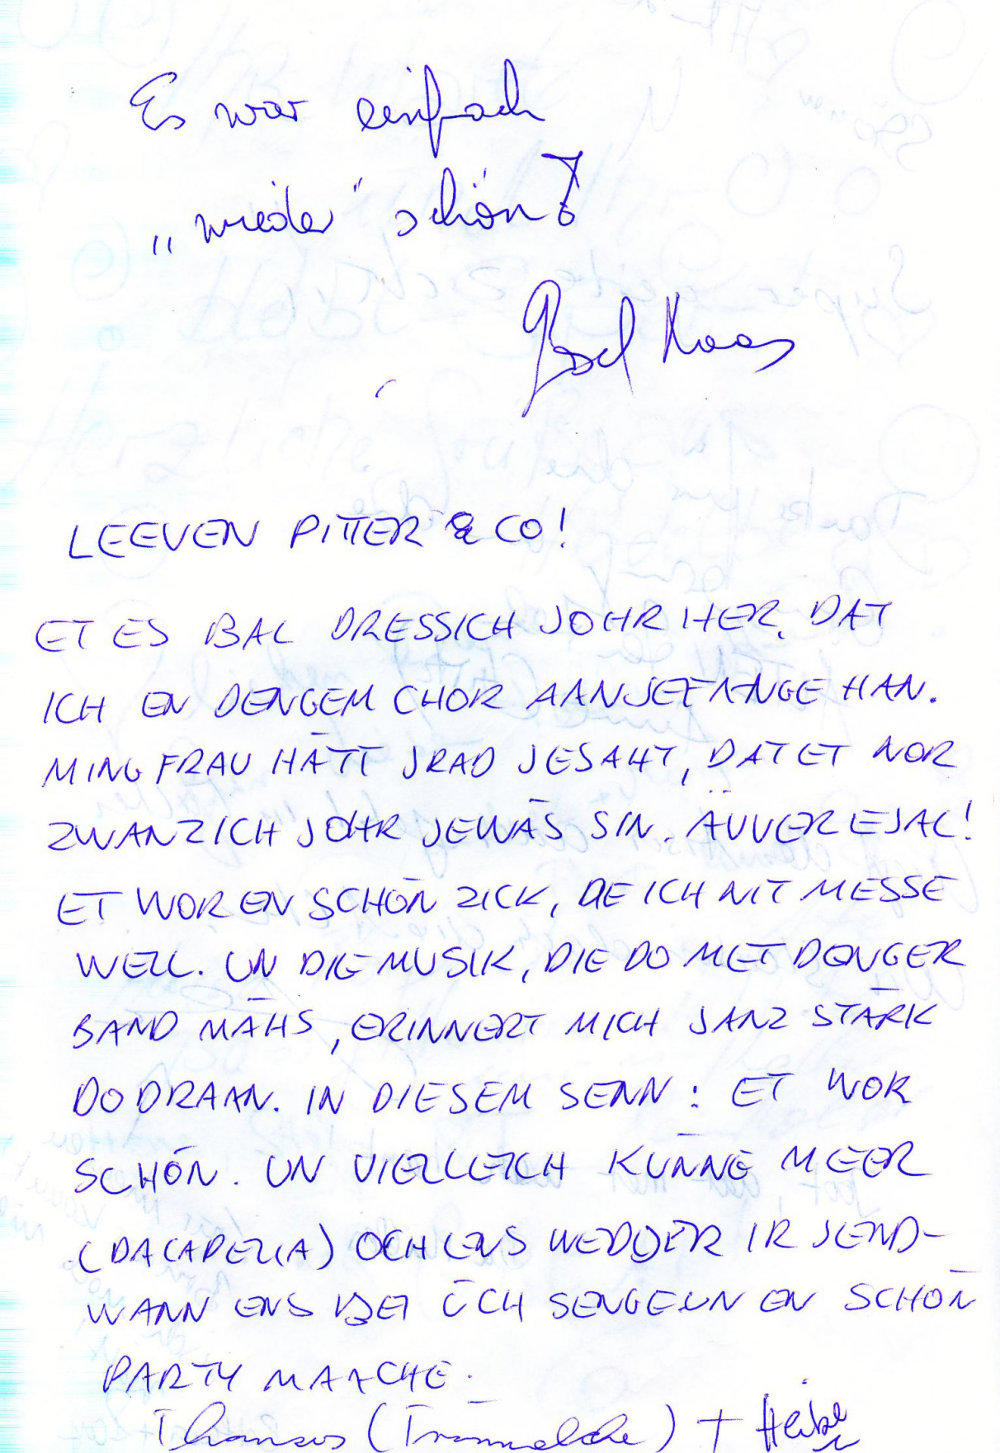 Es war einfach
„wieder" schön!
LEEVEN PITTER & CO!
ET ES BAL DRESSICH JOHR HER, DAT
ICH EN DENGEM CHOR AANJEFANGE HAN.
MING FRAU HÄTT JRAD JESAHT, DAT ET NOR
ZWANZICH JOHR JEWÄS SIN. ÄVVER EJAL!
ET WOR EN SCHÖN ZICK, DE ICH NIT MESSE
WELL. UN DIE MUSIK, DIE DO MET DENGER
BAND MÄHS, ERINNERT MICH JANZ STARK
DODRAAN. IN DIESEM SENN: ET WOR
SCHÖN. UN VIELLEICH KÜNNE MEER
(DACAPELLA) OCH ENS WEDDER IRJEND-
WANN ENS BEI ÜCH SENGE UN EN SCHÖN
PARTY MAACHE.
Thomas (Trömmelche) + Heike